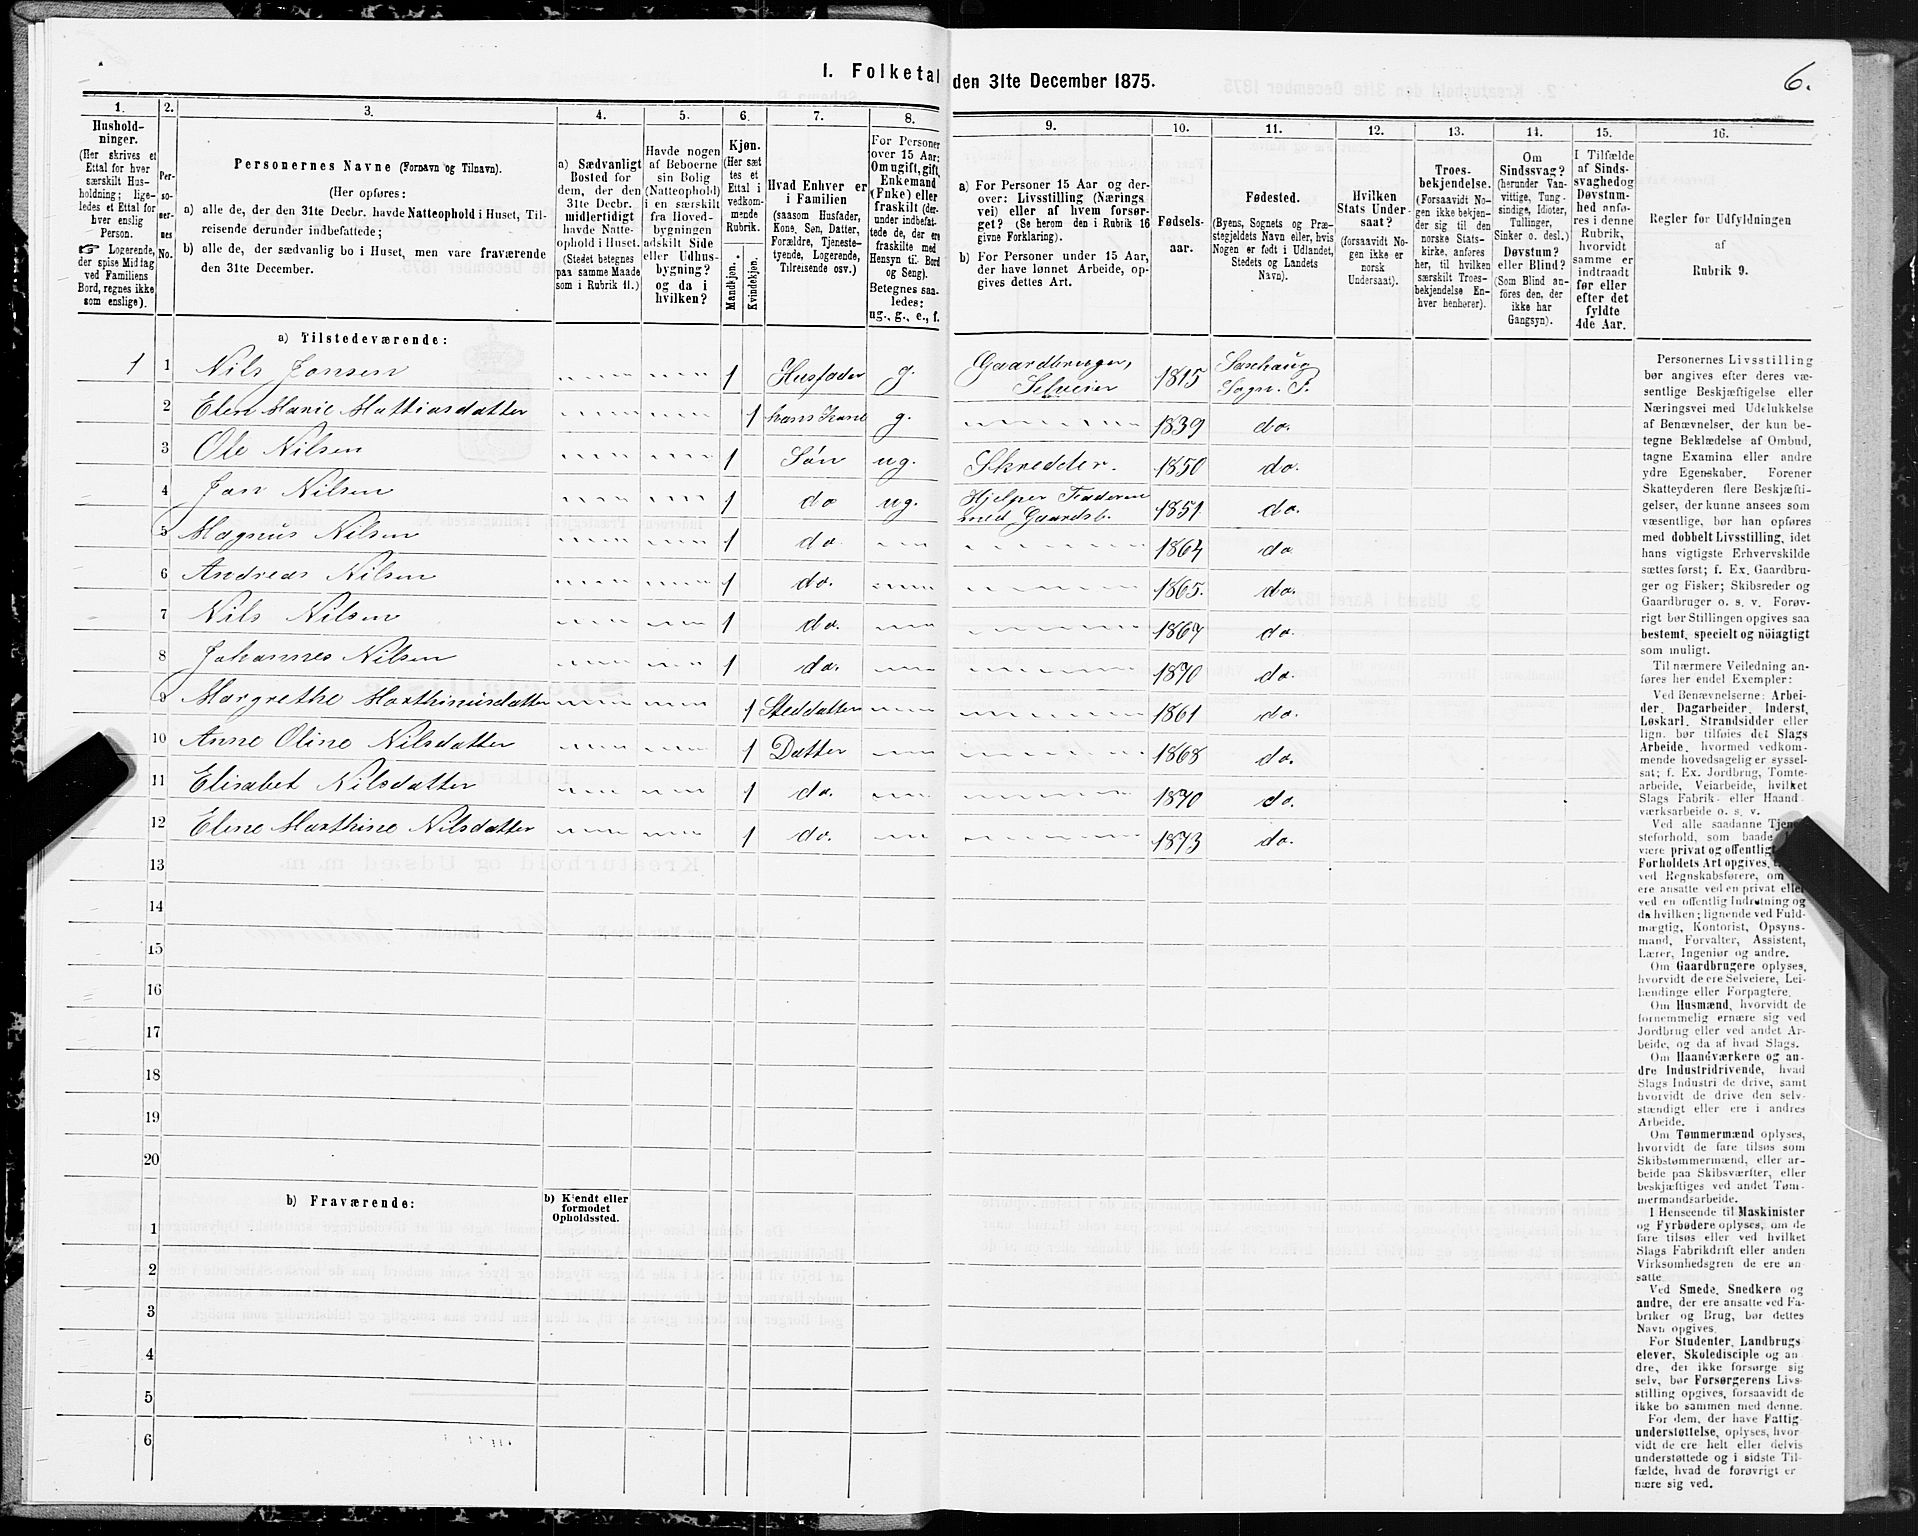 I. Folketal den 31te December 1875.
6.
1. 2. 3. 4. 5. 6. 7. 8. 9. 10. 11. 12. 13. 14. 15. 16.
Hushold-
ninger.
(Her skrives et
Ettal for hver
særskilt Hus-
holdning; lige-
ledes et Ettal for
hver enslig
Person.
Logerende,
der spise Middag
ved Familiens
Bord, regnes ikke
som enslige).
Per-
so-
ner-
nes
No.
Personernes Navne (Fornavn og Tilnavn).
(Her opføres:
a) alle de, der den 31te Decbr. havde Natteophold i Huset, Til-
reisende derunder indbefattede;
b) alle de, der sædvanlig bo i Huset, men vare fraværende
den 31te December.
a) Sædvanligt
Bosted for
dem, der den
31te Decbr.
midlertidigt
havde Natte-
ophold i Huset.
(Stedet betegnes
paa samme Maade
som i Rubrik 11.)
Havde nogen
af Beboerne
sin Bolig
(Natteophold)
i en særskilt
fra Hoved-
bygningen
adskilt Side
eller Udhus-
bygning?
og da i
hvilken?
Kjøn.
(Her sæt-
tes et
Ettal i
vedkom-
mende
Rubrik.
Mandkjøn.
Kvindekjøn.
Hvad Enhver er
i Familien
(saasom Husfader,
Kone, Søn, Datter,
Forældre, Tjeneste-
tyende, Logerende,
Tilreisende osv.)
For Personer
over 15 Aar:
Om ugift, gift,
Enkemand
(Enke) eller
fraskilt (der-
under indbefat-
tede de, der ere
fraskilte med
Hensyn til Bord
og Seng).
Betegnes saa-
ledes:
ug., g., e., f.
a) For Personer 15 Aar og der-
over: Livsstilling (Nærings
vei) eller af hvem forsør-
get? (Se herom den i Rubrik 16
givne Forklaring).
b) For Personer under 15 Aar,
der have lønnet Arbeide, op-
gives dettes Art.
Fødsels-
aar.
Fødested.
(Byens, Sognets og Præ-
stegjeldets Navn eller, hvis
Nogen er født i Udlandet,
Stedets og Landets
Navn).
Hvilken
Stats Under-
saat?
(forsaavidt No-
gen ikke er
norsk
Undersaat).
Troes-
bekjendelse.
(Forsaavidt No-
gen ikke bekjen-
der sig til den
norske Stats-
kirke, anføres
her, til hvilken
særskilt Troes-
bekjendelse En-
hver henhører).
Om
Sindssvag?
(herunder Van-
vittige, Tung-
sindige, Idioter,
Tullinger,
Sinker o. desl.)
Døvstum?
eller Blind?
(Som Blind an-
føres den, der
ikke har
Gangsyn).
I Tilfælde
af Sinds-
svaghed og
Døvstum-
hed anfø-
res i denne
Rubrik,
hvorvidt
samme er
indtraadt
før eller
efter det
fyldte
4de Aar.
Regler for Udfyldningen
af
Rubrik 9.
a) Tilstedeværende:
1 1 Nils Jonsen 1 Husfader g. Gaardbruger, Selveier 1815 Saxhaug Sogn. P.
2 Elen Marie Mathiasdatter 1 hans Kone g. 1839 do.
3 Ole Nilsen 1 Søn ug. Skredder. 1850 do.
4 Jon Nilsen 1 do ug. Hjelper Faderen med Gaardsb. 1851 do.
5 Magnus Nilsen 1 do. 1864 do
6 Andreas Nilsen 1 do. 1865. do.
7 Nils Nilsen 1 do. 1867 do.
8 Johannes Nilsen 1 do. 1870 do.
9 Margrethe Marthinusdatter 1 Steddatter 1861 do.
10 Anne Oline Nilsdatter 1 Datter 1868 do.
11 Elisabet Nilsdatter 1 do. 1870 do.
12 Eline Marthine Nilsdatter 1 do. 1873 do.
13
14
15
16
17
18
19
20
b) Fraværende:
b) Kjendt eller
formodet
Opholdssted.
1
2
3
4
5
6
Personernes Livsstilling
bør angives efter deres væ-
sentlige Beskjæftigelse eller
Næringsvei med Udelukkelse
af Benævnelser, der kun be-
tegne Beklædelse af Ombud,
tagne Examina eller andre
ydre Egenskaber. Forener
Skatteyderen flere Beskjæfti-
gelser, der kunne ansees som
væsentlige, bør han opføres
med dobbelt Livsstilling, idet
hans vigtigste Erhvervskilde
sættes først; f. Ex. Gaardbru-
ger og Fisker; Skibsreder og
Gaardbruger o. s. v. Forøv-
rigt bør Stillingen opgives saa
bestemt, specielt og nöiagtigt
som muligt.
Til nærmere Veiledning an-
føres her endel Exempler:
Ved Benævnelserne: Arbei-
der, Dagarbeider, Inderst,
Løskarl, Strandsidder eller
lign. bør tilføies det Slags
Arbeide, hvormed vedkom-
mende hovedsagelig er syssel-
sat; f. Ex. Jordbrug, Tomte-
arbeide, Veiarbeide, hvilket
Slags Fabrik- eller Haand-
værksarbeide o. s. v.
Ved alle saadanne Tjene-
steforhold, som baade
være privat og offentligt,
Forholdets Art opgives,
ved Regnskabsførere, om
ere ansatte ved en privat eller
ved en offentlig Indretning og
da hvilken; lignende ved Fuld-
mægtig, Kontorist, Opsyns-
mand, Forvalter, Assistent,
Lærer, Ingeniør og andre.
Om Gaardbrugere oplyses,
hvorvidt de ere Selveiere, Lei-
lændinge eller Forpagtere.
Om Husmænd, hvorvidt de
fornemmelig ernære sig ved
Jordbrug eller ved andet Ar-
beide, og da af hvad Slags.
Om Haandværkere og an-
dre Industridrivende, hvad
Slags Industri de drive, samt
hvorvidt de drive den selv-
stændigt eller ere i andres
Arbeide.
Om Tømmermænd oplyses,
hvorvidt de fare tilsøs som
Skibstømmermænd, eller ar-
beide paa Skibsværfter, eller
beskjæftiges ved andet Tøm-
mermandsarbeide.
I Henseende til Maskinister
og Fyrbødere oplyses, om de
fare tilsøs eller ved hvilket
Slags Fabrikdrift eller anden
Virksomhedsgren de ere an-
satte.
Ved Smede, Snedkere og
andre, der ere ansatte ved Fa-
briker og Brug, bør dettes
Navn opgives.
For Studenter, Landbrugs
elever, Skoledisciple og an-
dre, der ikke forsørge sig
selv, bør Forsørgerens Livs-
stilling opgives, forsaavidt de
ikke bo sammen med denne.
For dem, der have Fattig-
understøttelse, oplyses, hvor-
vidt de ere helt eller delvis
understøttede og i sidste Til-
fælde, hvad de forøvrigt er
nære sig ved.